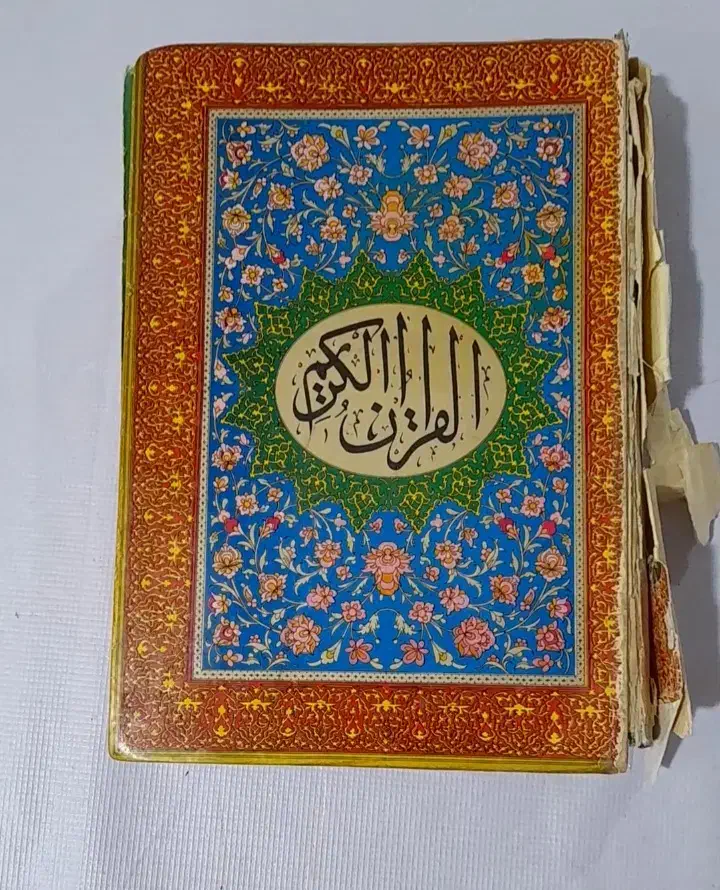 القرآن الكريم